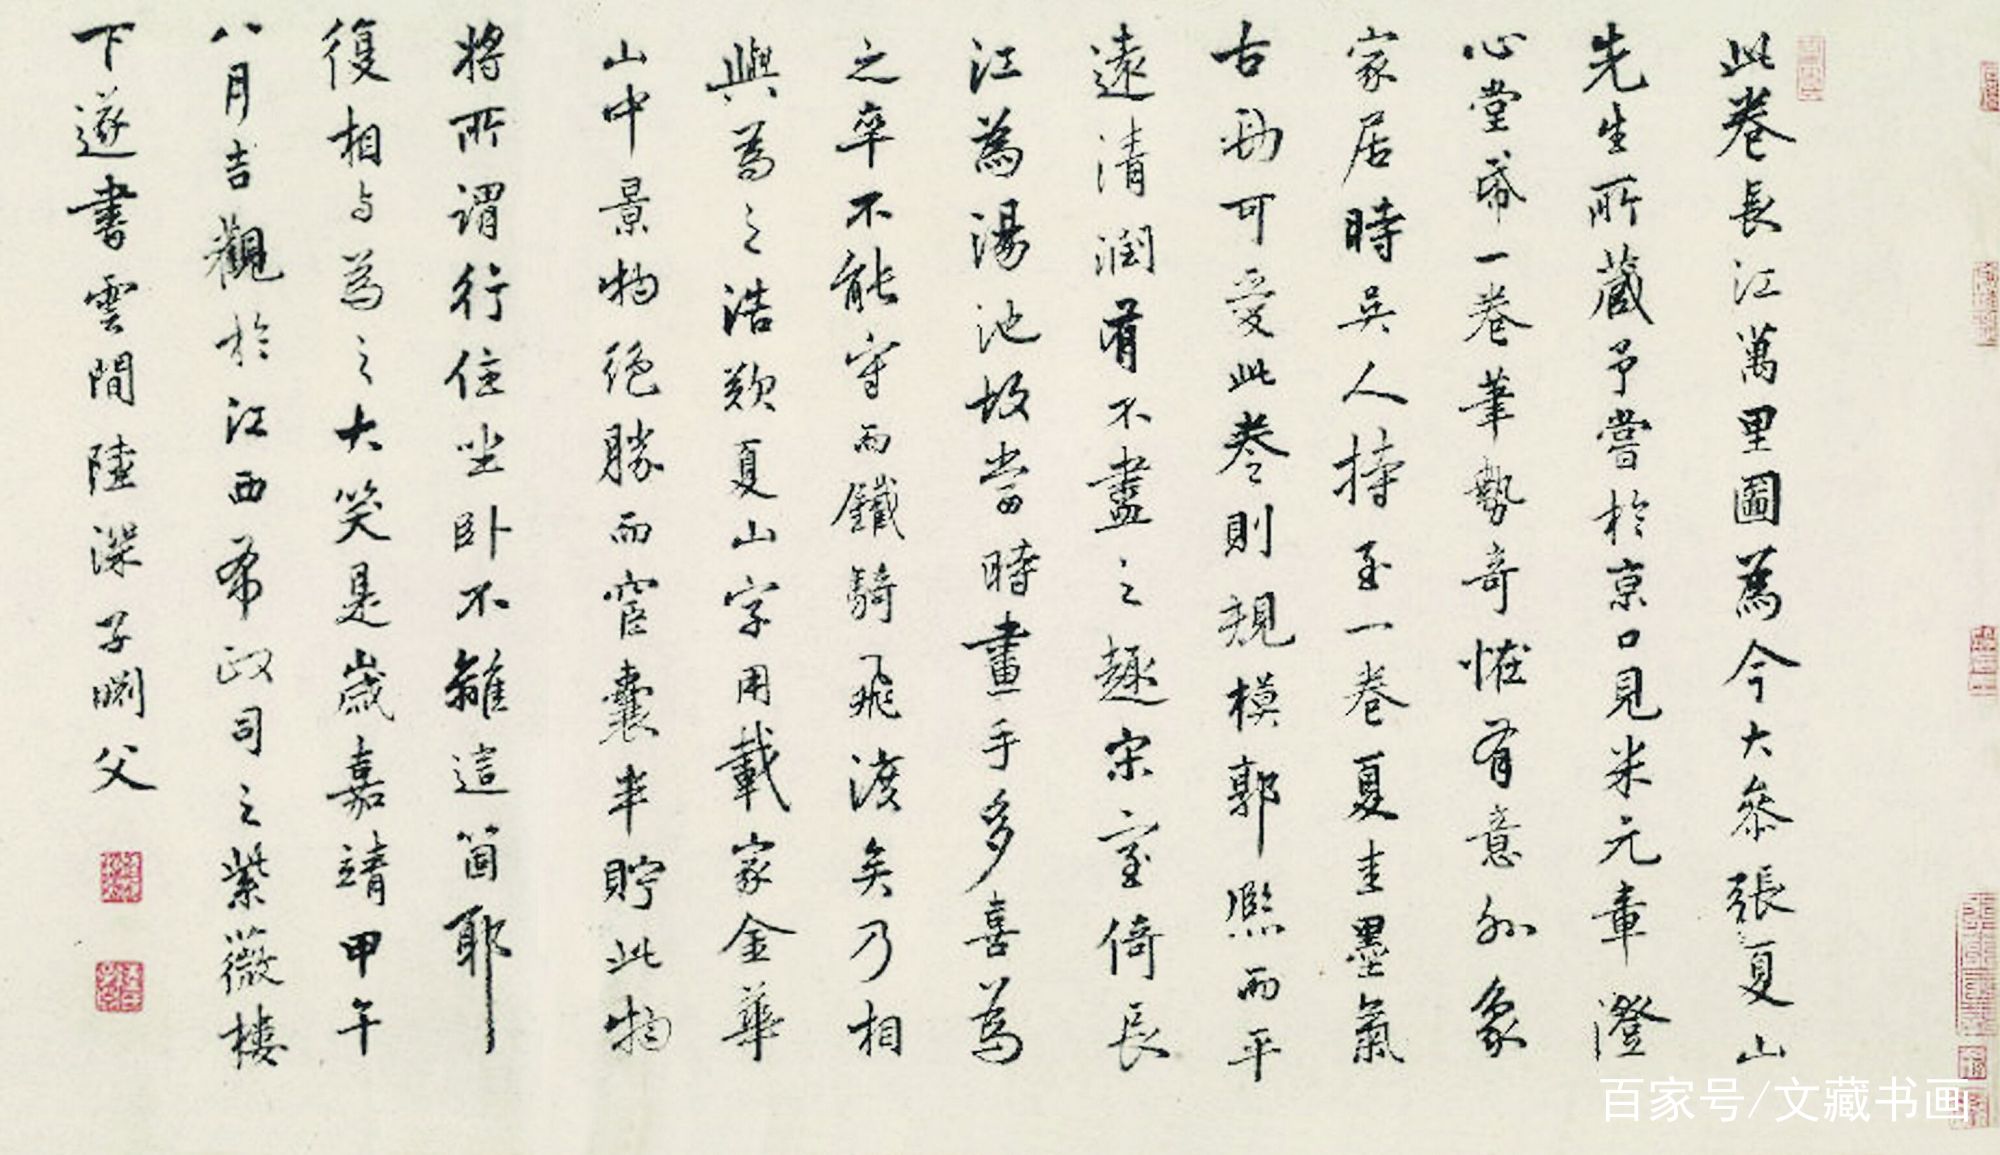 此卷長江萬里圖為今大參張夏山
先生所藏予嘗於京口見米元章澄
心堂帋一卷筆勢奇恠有意外象
家居時吳人持至一卷夏圭墨氣
古勁可愛此卷則規模郭熈而平
遠清潤有不盡之趣宋室倚長
江為湯池故當時畫手多喜為
之卒不能守而鐵騎飛渡矣乃相
與為之浩歎夏山字用載家金華
山中景物絕勝而宦囊半貯此物
將所謂行住坐卧不離這箇耶
復相与為之大笑是歲嘉靖甲午
八月吉觀於江西布政司之紫薇樓
下遂書雲間陸深子淵父
百家号/文藏书画